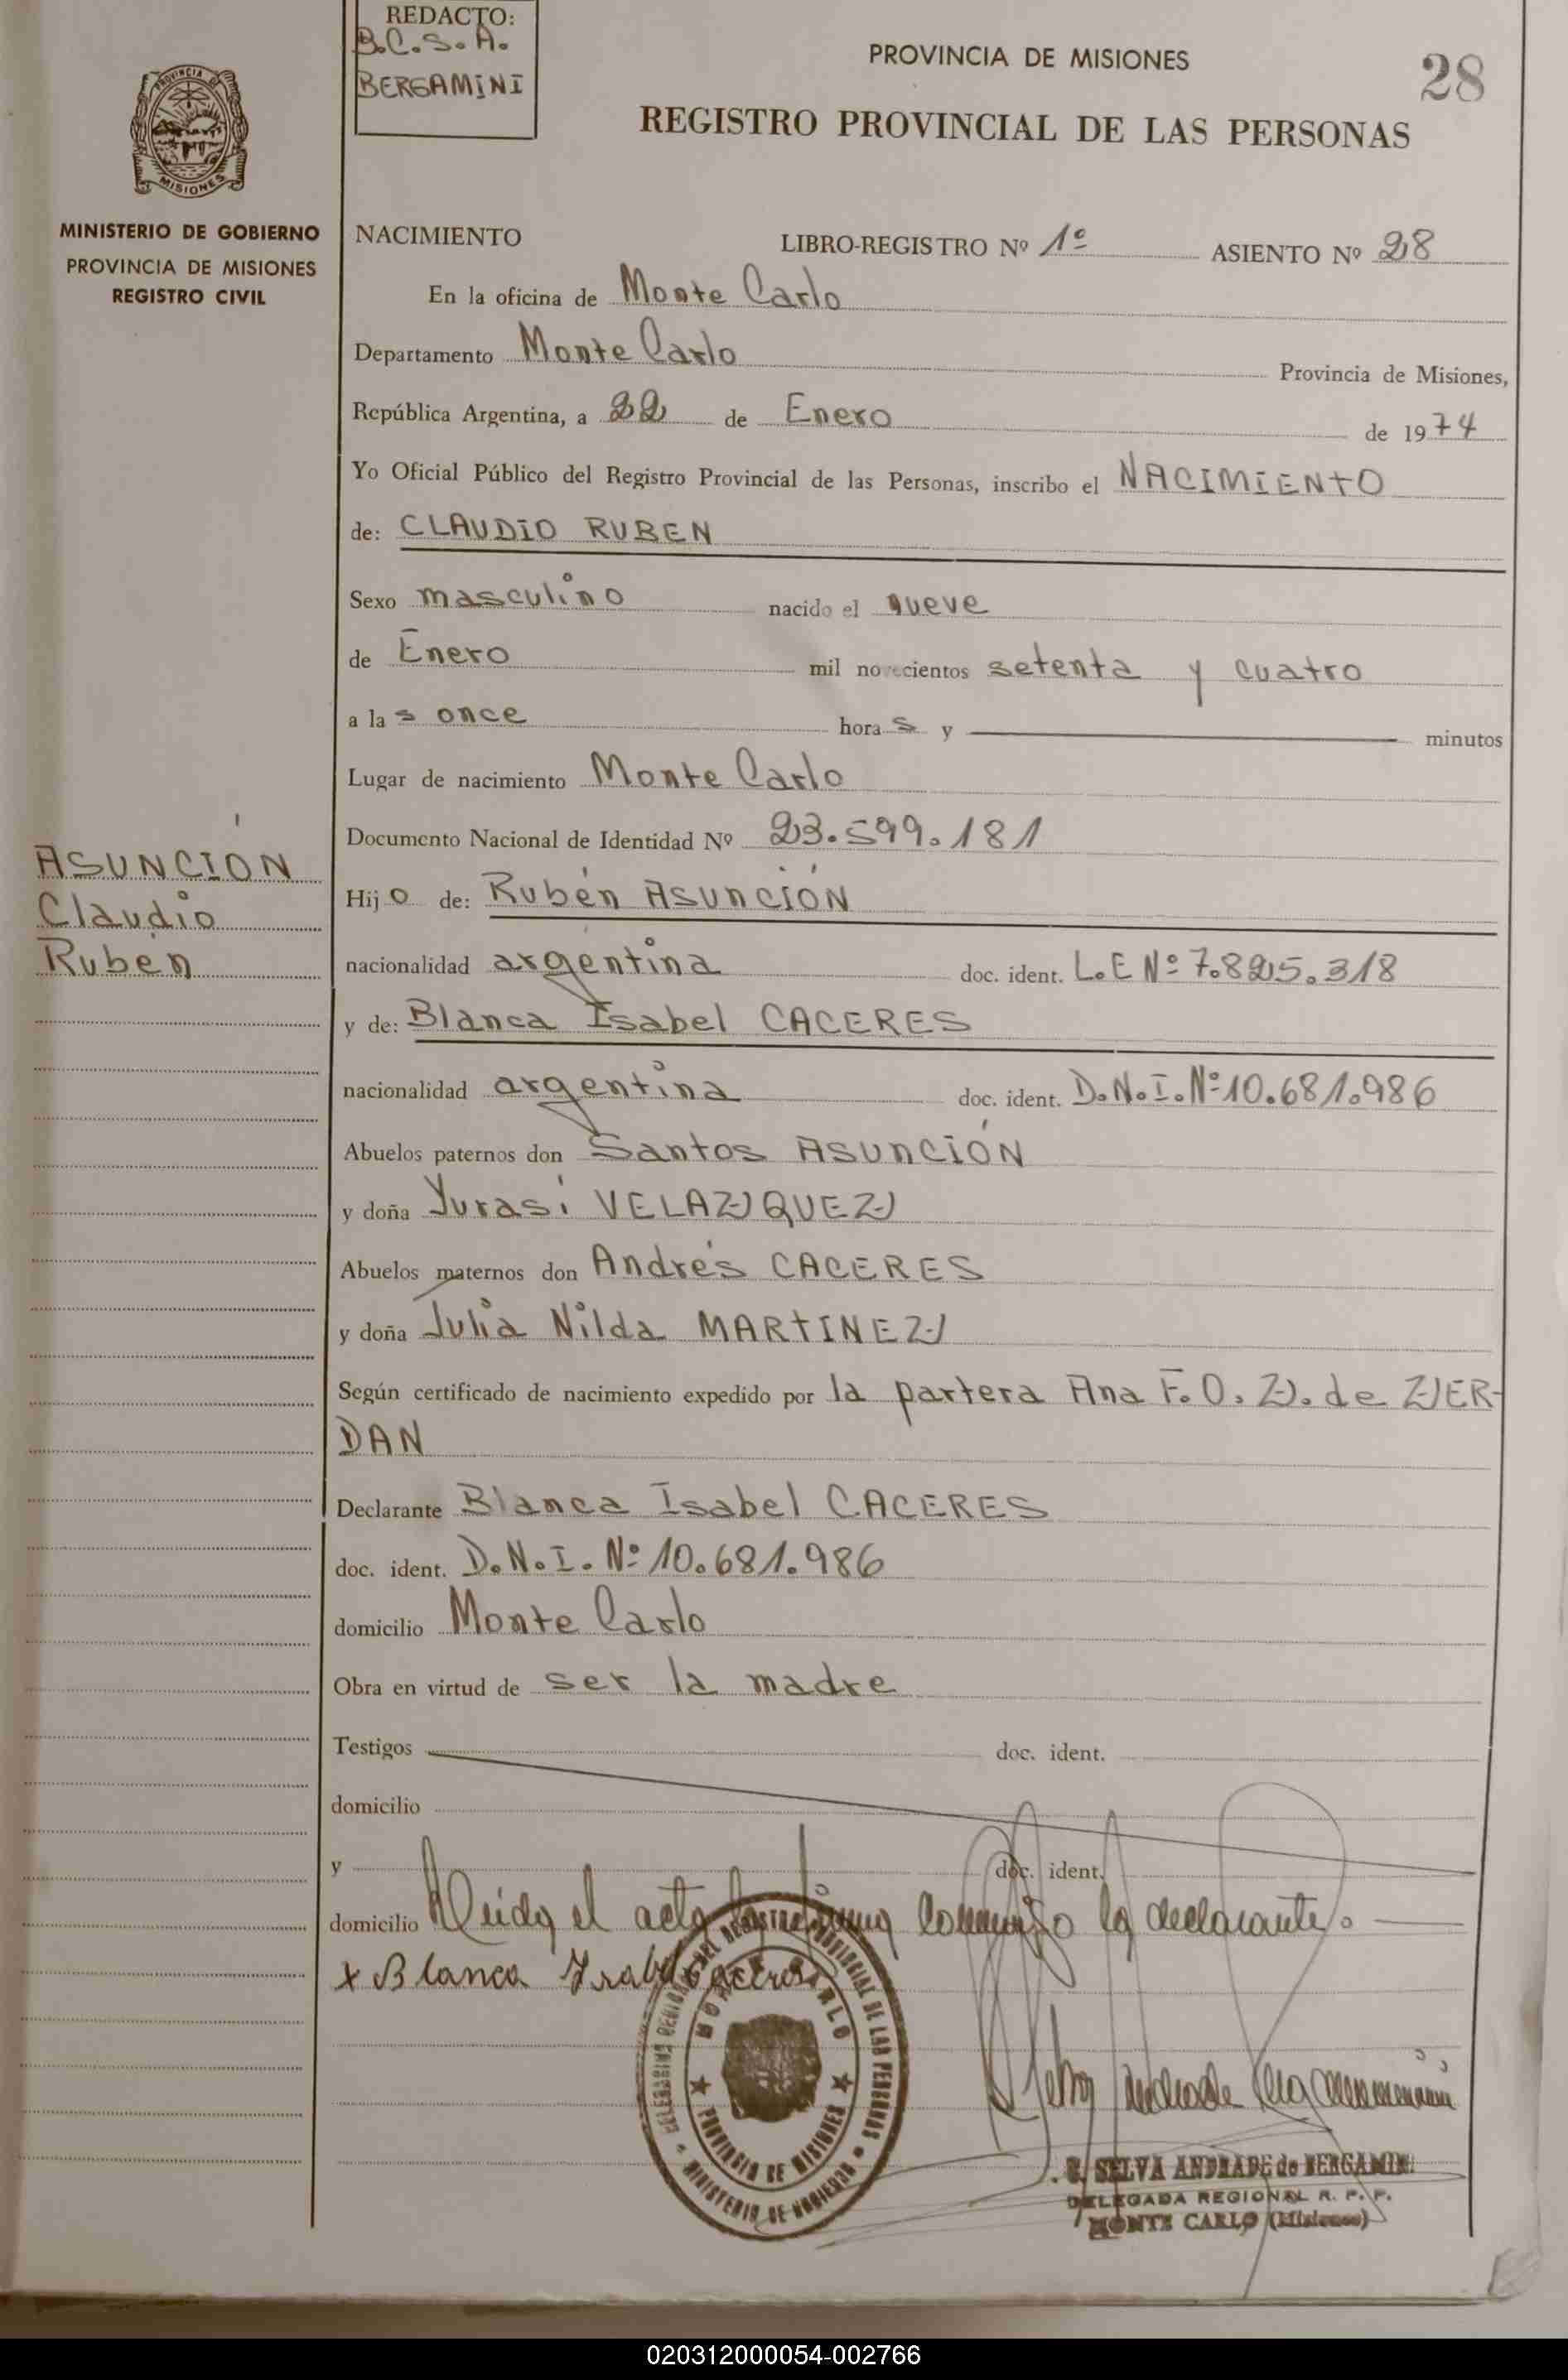 REDACTO:
B.C.S.A.
BERGAMINI
PROVINCIA DE MISIONES
28
REGISTRO PROVINCIAL DE LAS PERSONAS
PROVINCIA DE
MISIONES
MINISTERIO DE GOBIERNO
PROVINCIA DE MISIONES
REGISTRO CIVIL
NACIMIENTO LIBRO-REGISTRO Nº 1º ASIENTO Nº 28
En la oficina de Monte Carlo
Departamento Monte Carlo Provincia de Misiones,
República Argentina, a 22 de Enero de 1974
Yo Oficial Público del Registro Provincial de las Personas, inscribo el NACIMIENTO
de: CLAUDIO RUBEN
Sexo masculino nacido el nueve
de Enero mil novecientos setenta y cuatro
a las once horas y minutos
Lugar de nacimiento Monte Carlo
Documento Nacional de Identidad Nº 23.599.181
ASUNCIÓN
Claudio
Rubén
Hijo de: Rubén ASUNCIÓN
nacionalidad argentina doc. ident. L.E Nº 7.825.318
y de: Blanca Isabel CACERES
nacionalidad argentina doc. ident. D.N.I. Nº 10.681.986
Abuelos paternos don Santos ASUNCIÓN
y doña Yurasi VELAZQUEZ
Abuelos maternos don Andrés CACERES
y doña Julia Nilda MARTINEZ
Según certificado de nacimiento expedido por la partera Ana F. O. Z. de ZER-
DAN
Declarante Blanca Isabel CACERES
doc. ident. D.N.I. Nº 10.681.986
domicilio Monte Carlo
Obra en virtud de ser la madre
Testigos doc. ident.
domicilio
y doc. ident.
domicilio Leída el acta la firma conmigo la declarante.
x Blanca Isabel Caceres
DEL REGISTRO PROVINCIAL DE LAS PERSONAS
MONTE CARLO
PROVINCIA DE MISIONES
MINISTERIO DE GOBIERNO
SELVA ANDRADE de BERGAMINI
DELEGADA REGIONAL R. P. P.
MONTE CARLO (Misiones)
020312000054-002766